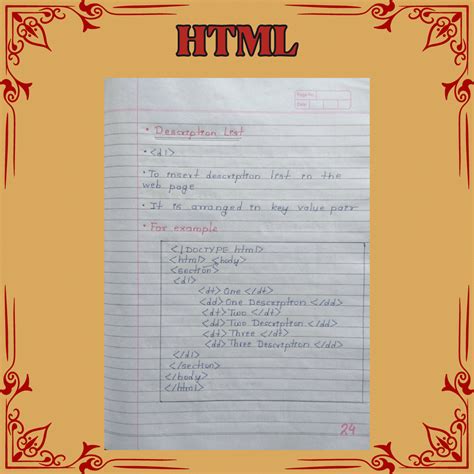 HTML
Page No.
Date
• Description List
• <dl>
• To insert description list in the
web page
• It is arranged in key value pair
• For example
<!DOCTYPE html>
<html> <body>
<section>
<dl>
<dt> One </dt>
<dd> One Description </dd>
<dt> Two </dt>
<dd> Two Description </dd>
<dt> Three </dt>
<dd> Three Description </dd>
</dl>
</section>
</body>
</html>
24